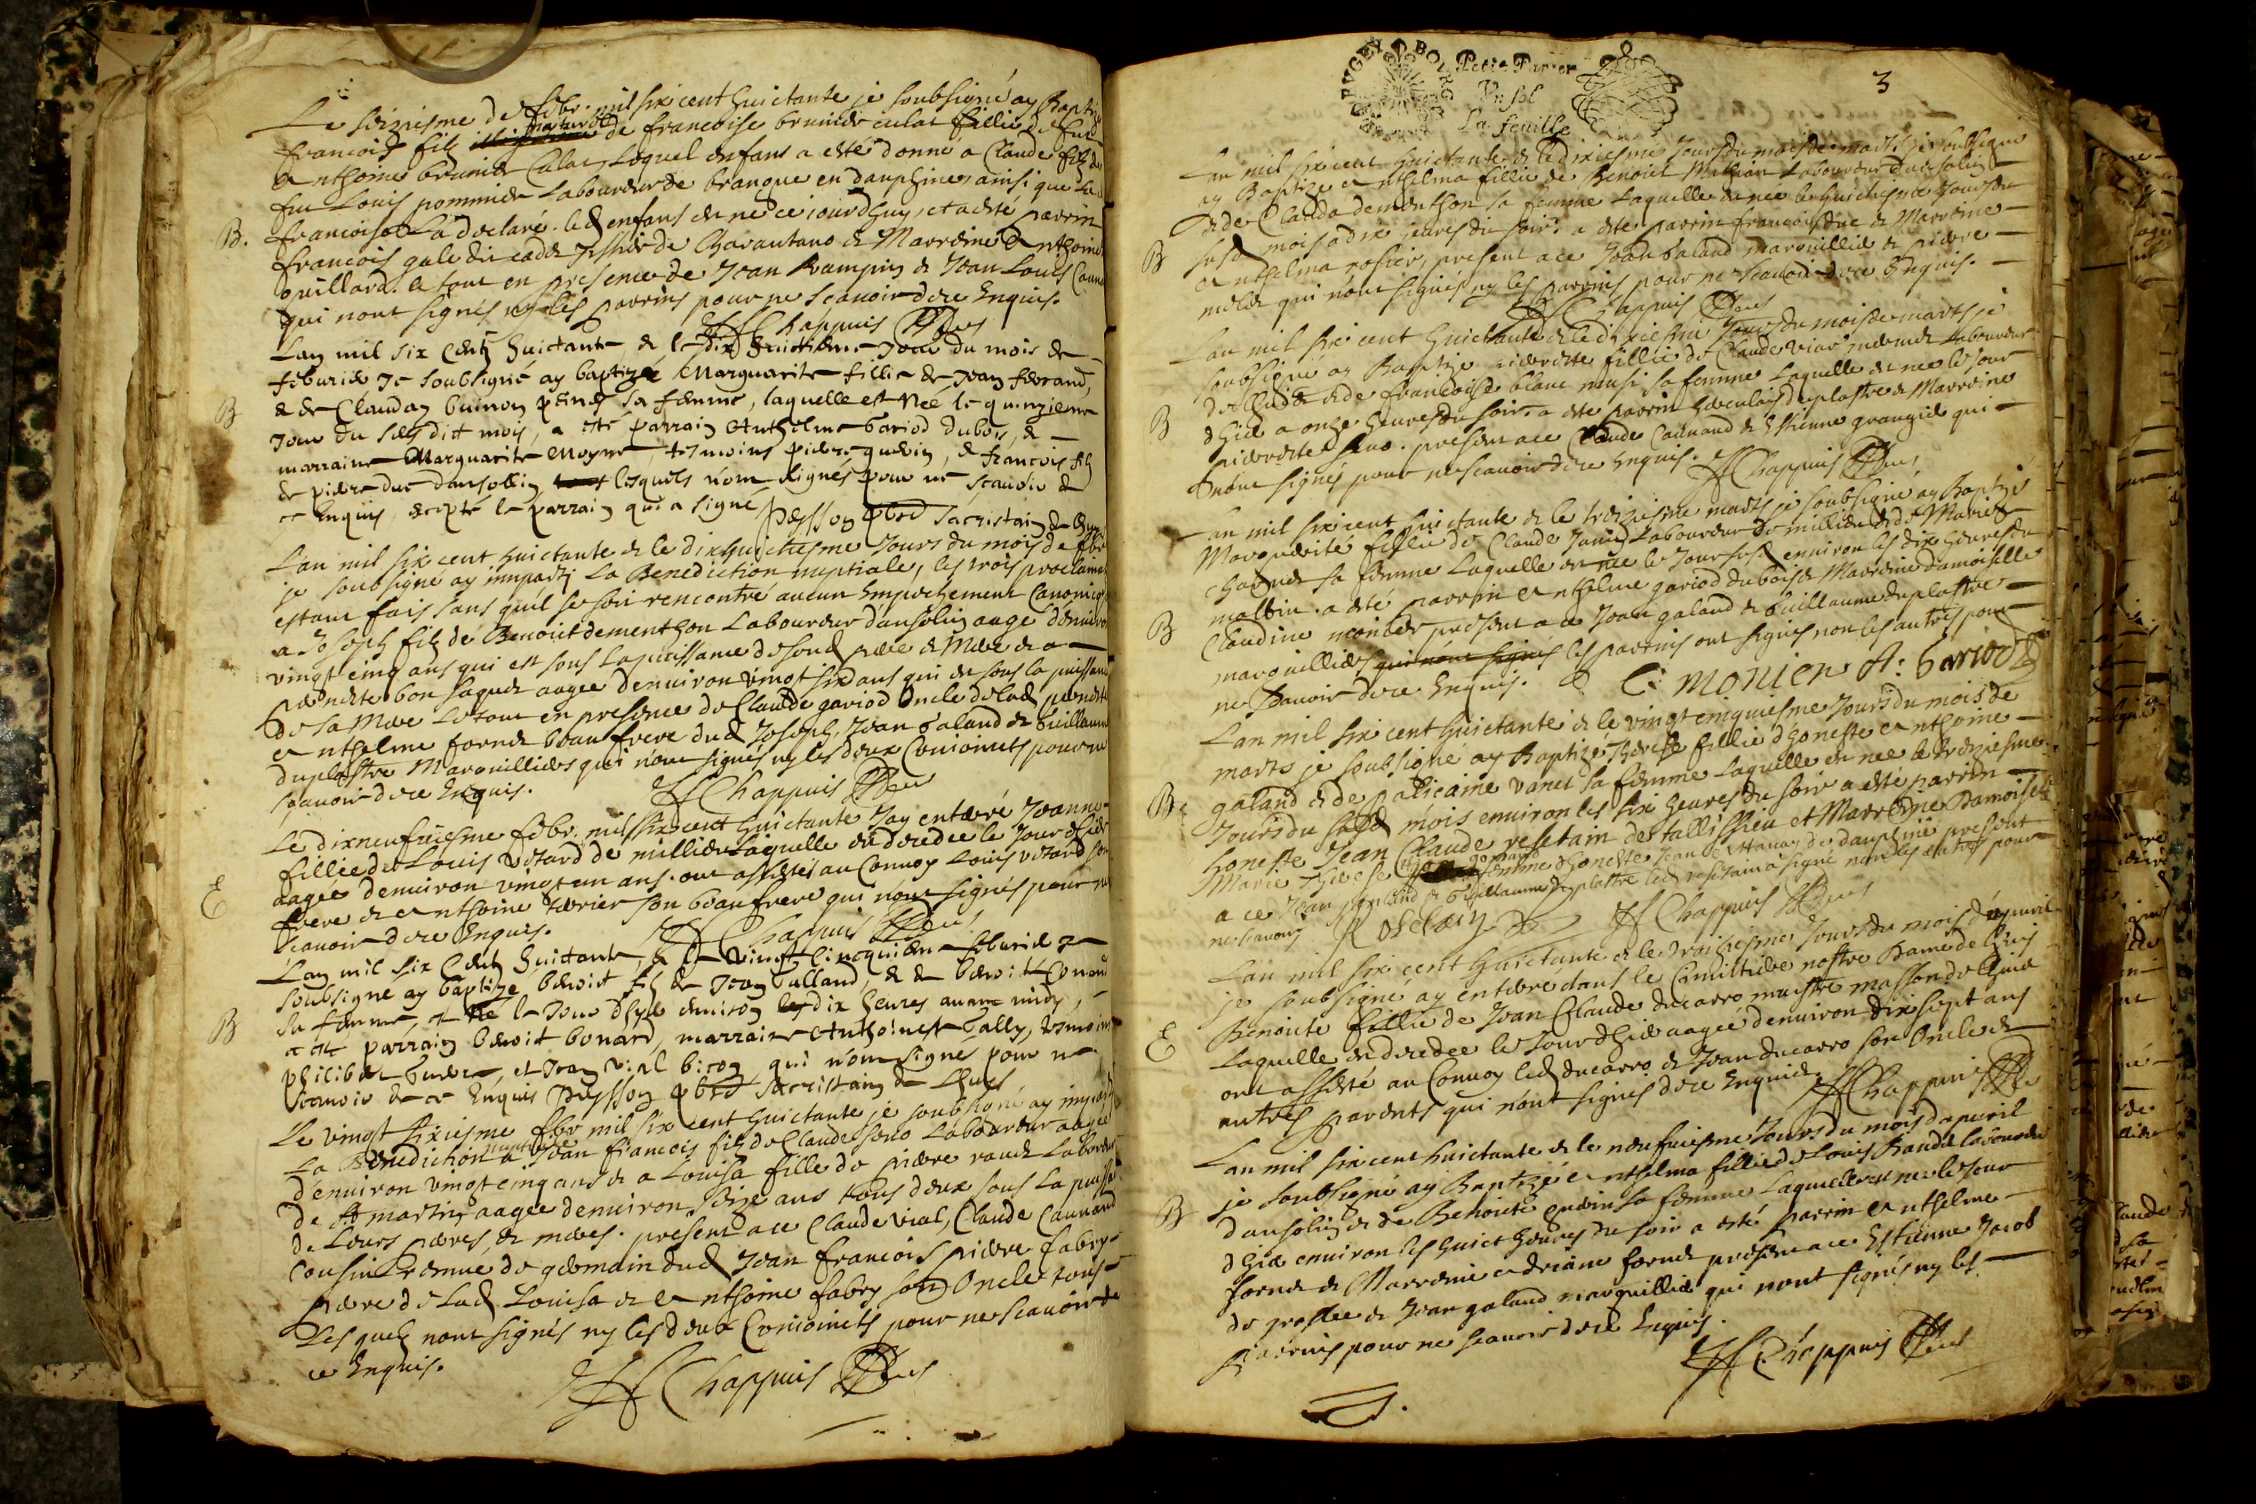 Le seiziesme de febr. mil six cent huictante je soubsigné ay Baptizé
francois filz naturel de francoise brunier culat fillie de fut
Anthoine brunier Culat, Lequel enfans a esté donné a Claude filz de
fut Louis pommier Labourdeur de brangue en dauphiné ainsi que La d
francoise L'a declaré. led enfans est né ce iourdhuy, et a esté parrin
B.
francois gale dit cadet Tissier de Charantano et Marreine Anthoine
ouillard. le tout en presence de Jean Rampin et Jean Louis
qui n'ont signés ny les parrins pour ne scauoir de ce Enquis.
Chappuis
Lan mil six Centz huictante, et le dix huictieme Jour du mois de
feburier Je soubsigné ay baptizé Marguerite fillie de Jean ferrand,
B
& de Claudaz buinoy sa femme, laquelle est née le quinzieme
Jour du susdit mois, a esté parrain Anthelme Gariod dubois, &
marraine Marguerite Moyne, tesmoins pierre guerin, & francois filz
de pierre duc dansollin lesquels n'ont signés pour ne scauoir de
ce Enquis, excepté le parrain qui a signé. Peysson sacristain de
L'an mil six cent huictante et le dixhuictiesme Jours du mois de febr
je soubsigné ay imparty La Benediction nuptiale, les trois proclames
estant fais sans qu'il se soit rencontré aucun Empechement Canonique
a Joseph filz de Benoict dementhon Labourdeur d'ansolin aagé denuiron
vingt cinq ans qui est sous La puissance de soud pere et Mere et a
pernette bon saguet aagée denuiron vingt six ans qui est sous la puissance
de sa Mere Le tout en presence de Claude gariod Oncle de lad pernette
Anthelme fornet beau frere dud Joseph, Jean Galand et Guillaume
duplastre Marguilliers qui n'ont signés ny les deux Conioincts pour ne
scauoir de ce Enquis.
Chappuis
Le dixneufuiesme febr. mil six cent huictante Jay enterré Jeanne
fillie de Louis Vetard de millieu Laquelle est decedée le Jour d'hier
E
aagée denuiron vingt un ans. ont assistés au Conuoy Louis Vetard son
frere et Anthoine terrier son beaufrere qui n'ont signés pour ne
scauoir de ce Enquis.
Chappuis
Lan mil six Centz huictante, & le vingt Cincquieme feburier Je
soubsigné ay baptizé benoist filz de Jean Galland, & de benoite Conand
B
sa femme, est né le Jour dhyer enuiron les dix heures auant midy,
a esté parrain benoit bonard, marraine Anthoinette Gally, temoins
philibert Tudet, et Jean vial bicoz qui n'ont signé pour ne
scauoir de ce Enquis Peysson sacristain de
Le vingt sixiesme febr mil six cent huictante je soubsigné ay imparty
nuptiale
La Benediction a Jean francois filz de Claude seno Labourdeur aagée
d'enuiron vingt cinq ans et a Louisa fillie de pierre raudet Labourdeur
de St martin aagée denuiron seize ans tous deux sous La puissance
de Leurs peres, et meres. present a ce Claude Vial, Claude Caunand
Cousin remué de germain dud Jean francois pierre fabry
pere de Lad Louisa et Anthoine fabry son Oncle tous
Lesquelz n'ont signés ny les deux Conioincts pour ne scauoir de
ce Enquis.
Chappuis
BUGEY BOURG
Petit Papier
Un sol
La feuille
3
L'an mil six cent huictante et le dixiesme Jours du mois de marts je soubsigné
ay Baptizé Anthelma fillie de Benoict Labourdeur d'ansolin
et de Clauda dementhon sa femme Laquelle est née le huictiesme Jours du
B
susd mois a dix heures du soir. a esté parrin francois duc et Marreine
Anthelma rosier, present a ce Jean Galand marguillier et pierre
mercier qui n'ont signés ny les parrins pour ne scauoir de ce Enquis.
Chappuis
L'an mil six cent huictante et le dixiesme Jours du mois de marts je
soubsigné ay Baptizé pierrette fillie de Claude Vial Labourdeur
B
de lhuis et de francoise blanc sa femme Laquelle est née le Jour
d'hier a onze heures du soir. a esté parrin duplastre et Marreine
pierrette seno. present a ce Claude Caunand et Estienne grangier qui
n'ont signés pour ne scauoir de ce Enquis. Chappuis
L'an mil six cent huictante et le treiziesme marts je soubsigné ay Baptizé
Marguerite fillie de Claude Janin Labourdeur de millieu et de Marie
sa femme Laquelle est née le Jour susd enuiron les dix heures du
mattin. a esté parrin Anthelme gariod dubois et Marreine damoiselle
B
Claudine monier present a ce Jean galand et Guillaume duplastre
marguilliers qui n'ont signés les parrins ont signés non les autres pour
ne scauoir de ce Enquis. C: Monier A: Gariod
L'an mil six cent huictante et le vingt cinquiesme Jours du mois de
marts je soubsigné ay Baptizé Therese fillie d'honeste Anthoine
B.
galand et de paticaine Vanet sa femme Laquelle est née le troziesme
Jours du susd mois enuiron les six heures du soir a esté parrin
honeste Jean Claude resetain de tallissieu et Marreine Damoiselle
Marie Therese femme d'honeste Jean de dauphiné present
a ce Jean galand et Guillaume duplastre led resetain a signé non les autres pour
ne scauoir
Rosetain
Chappuis
L'an mil six cent huictante et le troisiesme Jours du mois d'apuril
je soubsigné ay enterré dans le Cimittiere nostre Dame de lhuis
Benoite fillie de Jean Claude ducarro maistre masson de lhuis
E
Laquelle est decedée le Jour d'hier aagée denuiron dix sept ans
ont assisté au Conuoy led ducarro et Jean ducarro son Oncle et
autres parents qui n'ont signés de ce Enquis.
Chappuis
L'an mil six cent huictante et le neufuiesme Jours du mois d'apuril
je soubsigné ay Baptizé Anthelma fillie de Louis Raudet Labourdeur
B
d'ansolin et de Benoite guerin sa femme Laquelle est née le Jour
d'hier enuiron les huict heures du soir a esté parrin Anthelme
fornet et Marreine Adriane fornet present a ce Estienne Jacob
de groslee et Jean galand marguillier qui n'ont signés ny les
parrins pour ne scauoir de ce Enquis.
Chappuis